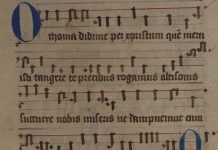 O
thoma didime per xpistum quem meru
isti tangere te precibus rogamus altisonis
succurre nobis miseris ne dampnemur cum